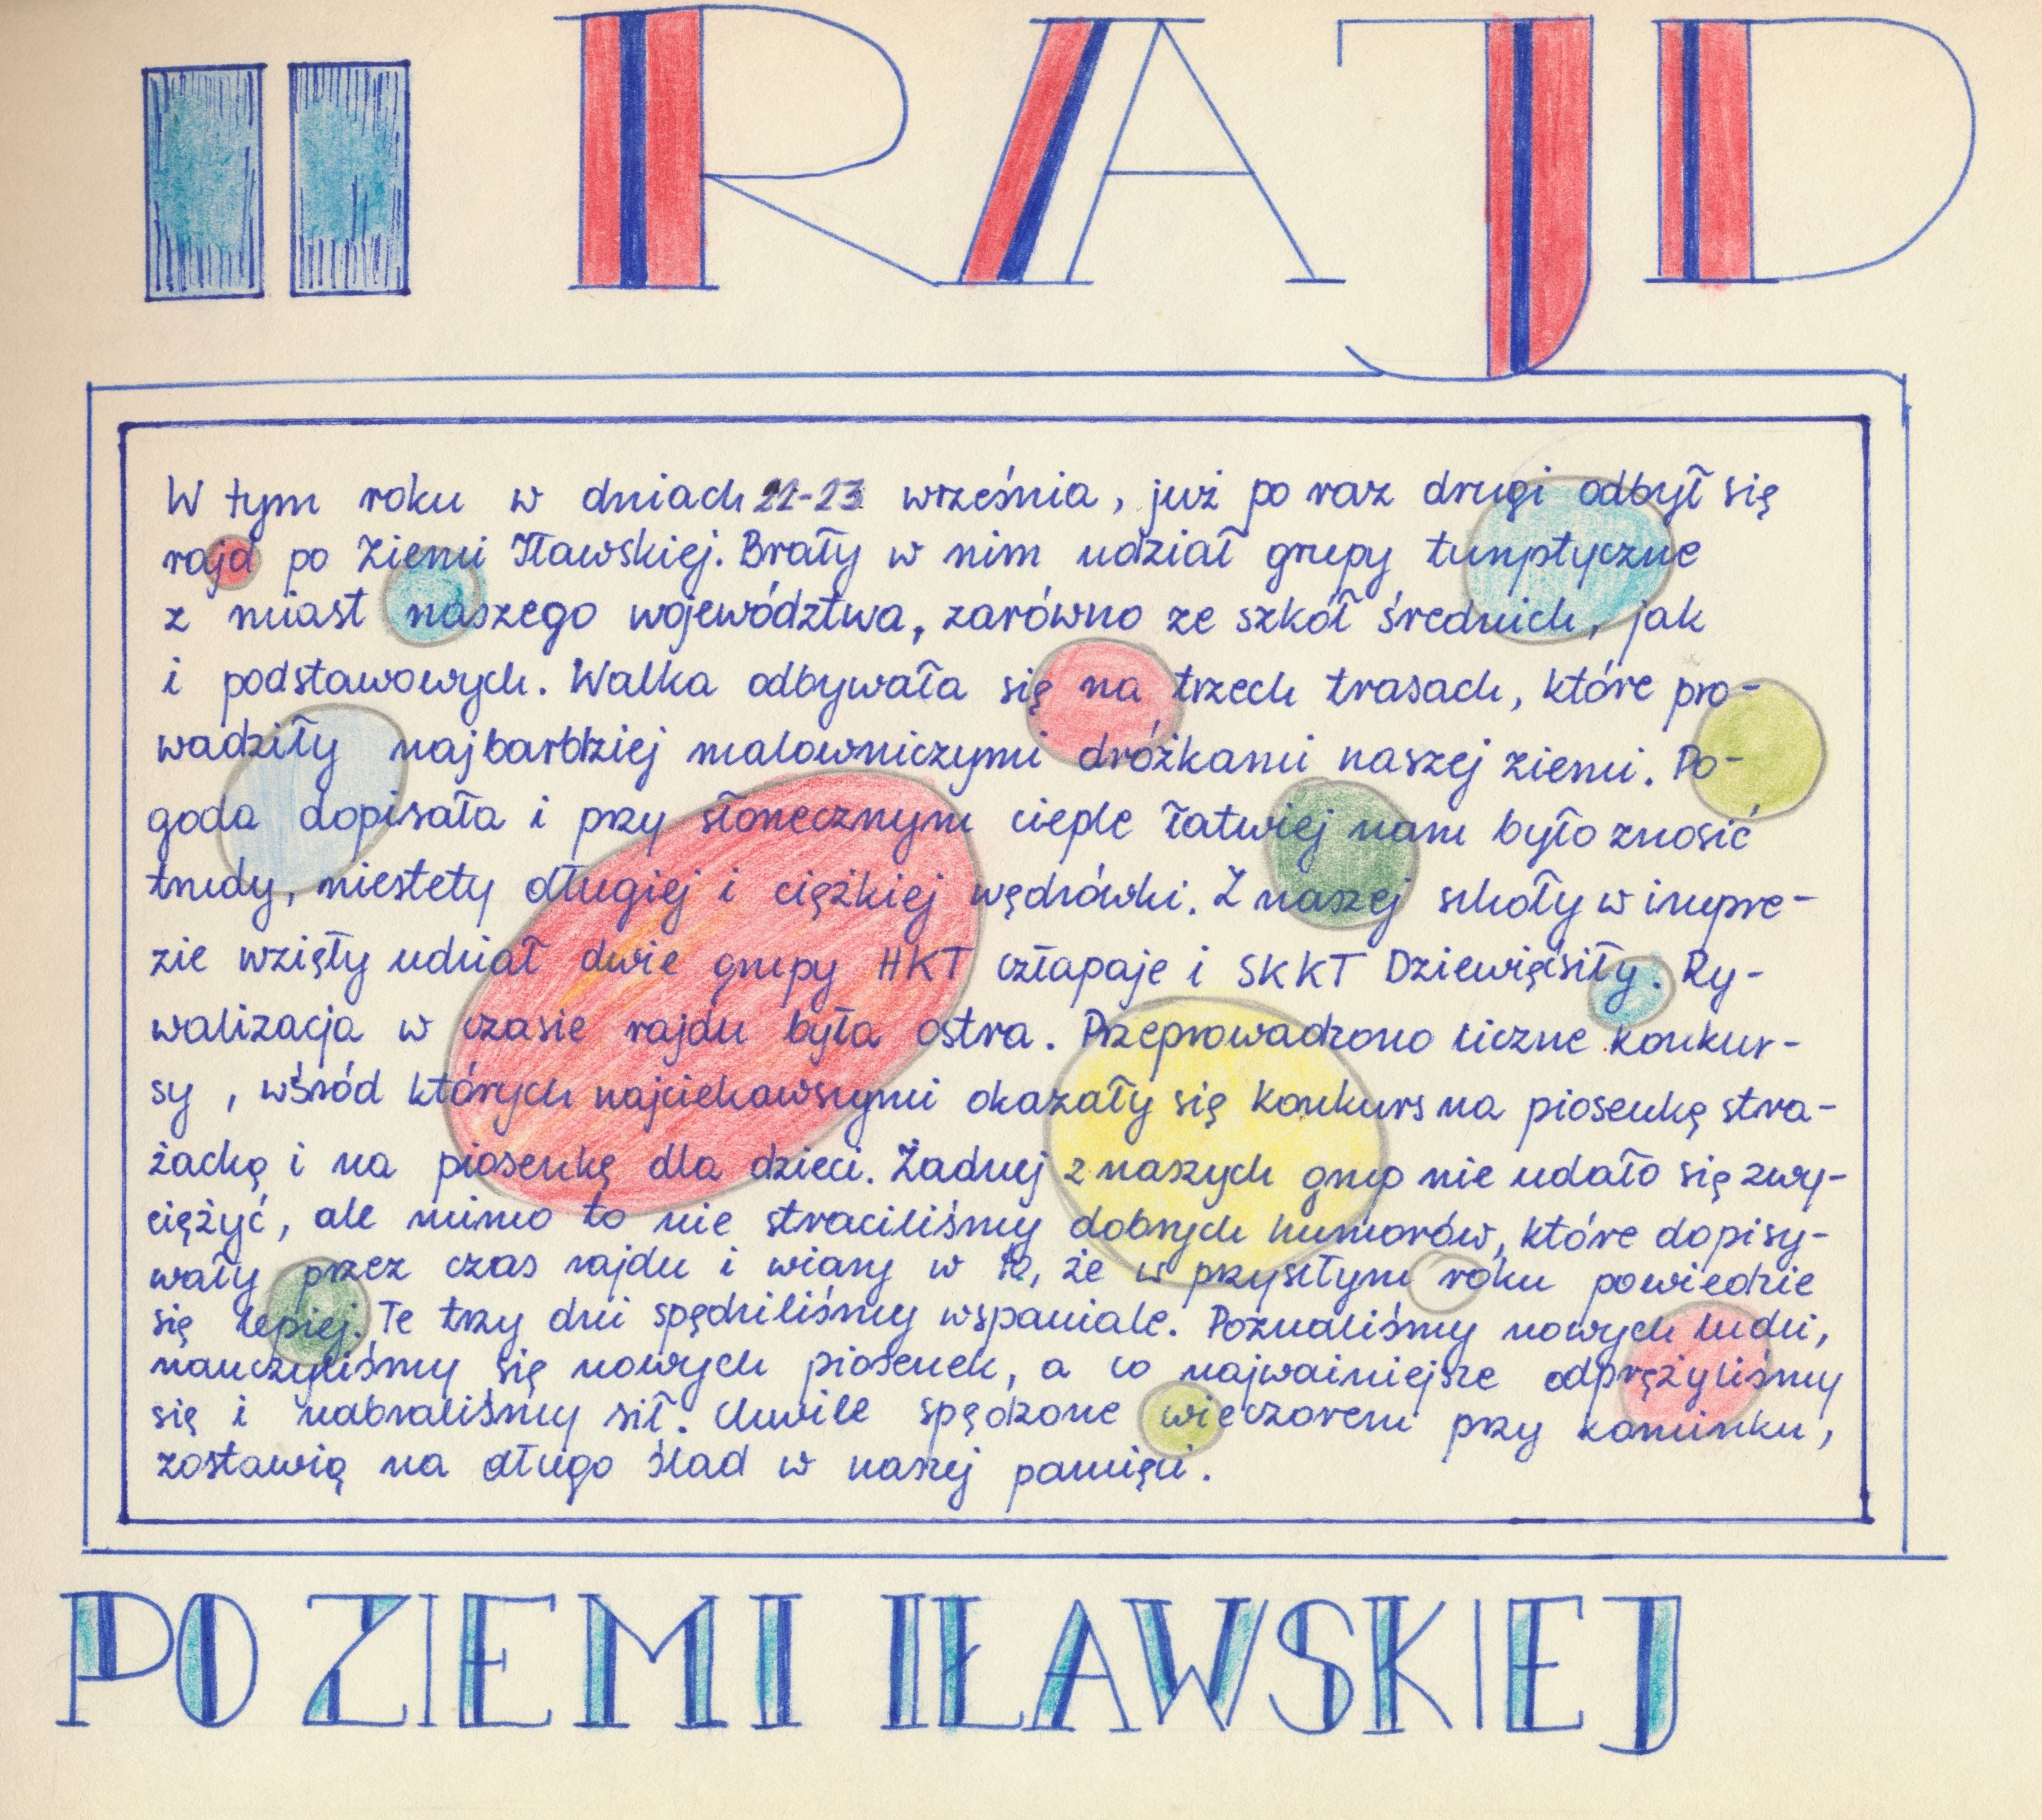 II RAJD
W tym roku w dniach 21-23 września, już po raz drugi odbył się
rajd po Ziemi Iławskiej. Brały w nim udział grupy turystyczne
z miast naszego województwa, zarówno ze szkół średnich, jak
i podstawowych. Walka odbywała się na trzech trasach, które pro-
wadziły najbardziej malowniczymi dróżkami naszej ziemi. Po-
goda dopisała i przy słonecznym cieple łatwiej nam było znosić
trudy, niestety długiej i ciężkiej wędrówki. Z naszej szkoły w impre-
zie wzięły udział dwie grupy HKT człapaje i SKKT Dziewięćsiły. Ry-
walizacja w czasie rajdu była ostra. Przeprowadzono liczne konkur-
sy, wśród których najciekawszymi okazały się konkurs na piosenkę stra-
żacką i na piosenkę dla dzieci. Żadnej z naszych grup nie udało się zwy-
ciężyć, ale mimo to nie straciliśmy dobrych humorów, które dopisy-
wały przez czas rajdu i wiary w to, że w przyszłym roku powiedzie
się lepiej. Te trzy dni spędziliśmy wspaniale. Poznaliśmy nowych ludzi,
nauczyliśmy się nowych piosenek, a co najważniejsze odprężyliśmy
się i nabraliśmy sił. Chwile spędzone wieczorem przy kominku,
zostawią na długo ślad w naszej pamięci.
PO ZIEMI IŁAWSKIEJ